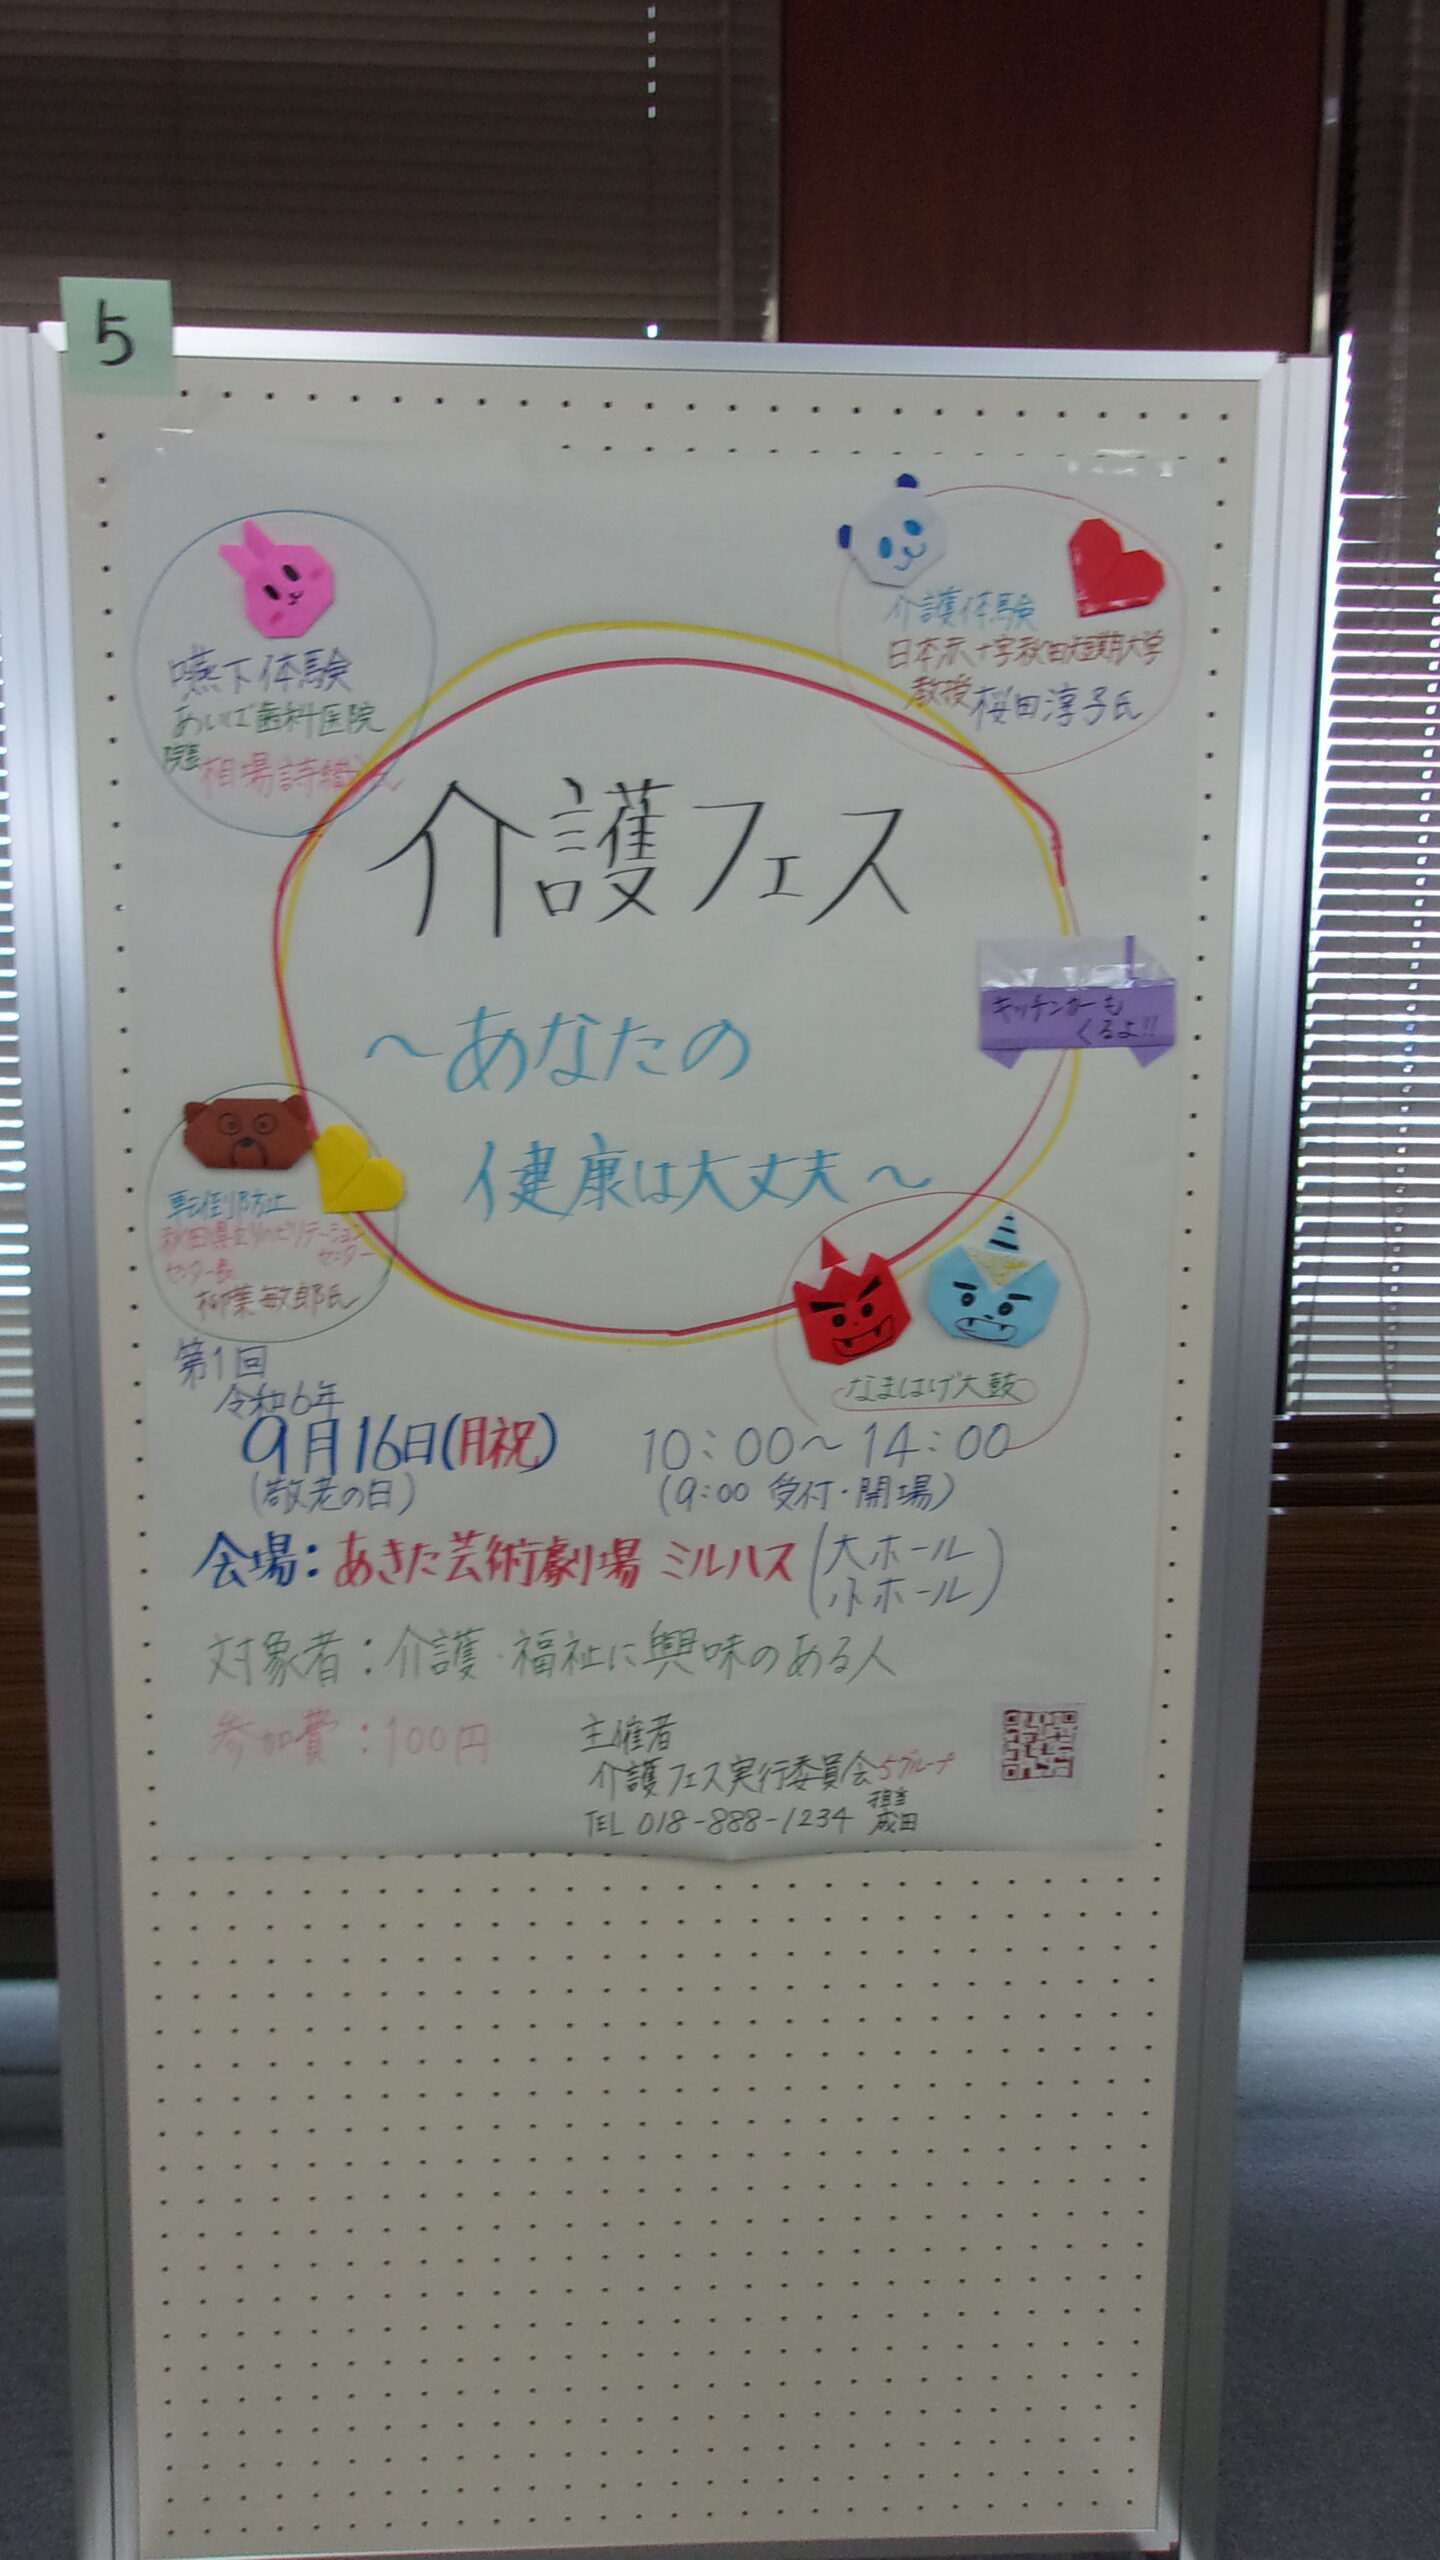 5
嚥下体験
あいば歯科医院
院長 相場詩織氏
介護体験
日本赤十字秋田短期大学
教授 桜田淳子氏
介護フェス
～あなたの
健康は大丈夫～
キッチンカーも
くるよ!!
転倒防止
秋田県立リハビリテーション
センター
センター長
柳葉敏郎氏
なまはげ太鼓
第1回
令和6年
9月16日(月祝) 10：00～14：00
(敬老の日) (9:00 受付・開場)
会場：あきた芸術劇場 ミルハス (大ホール
小ホール)
対象者：介護・福祉に興味のある人
参加費：100円
主催者
介護フェス実行委員会5グループ
TEL 018-888-1234 担当
成田